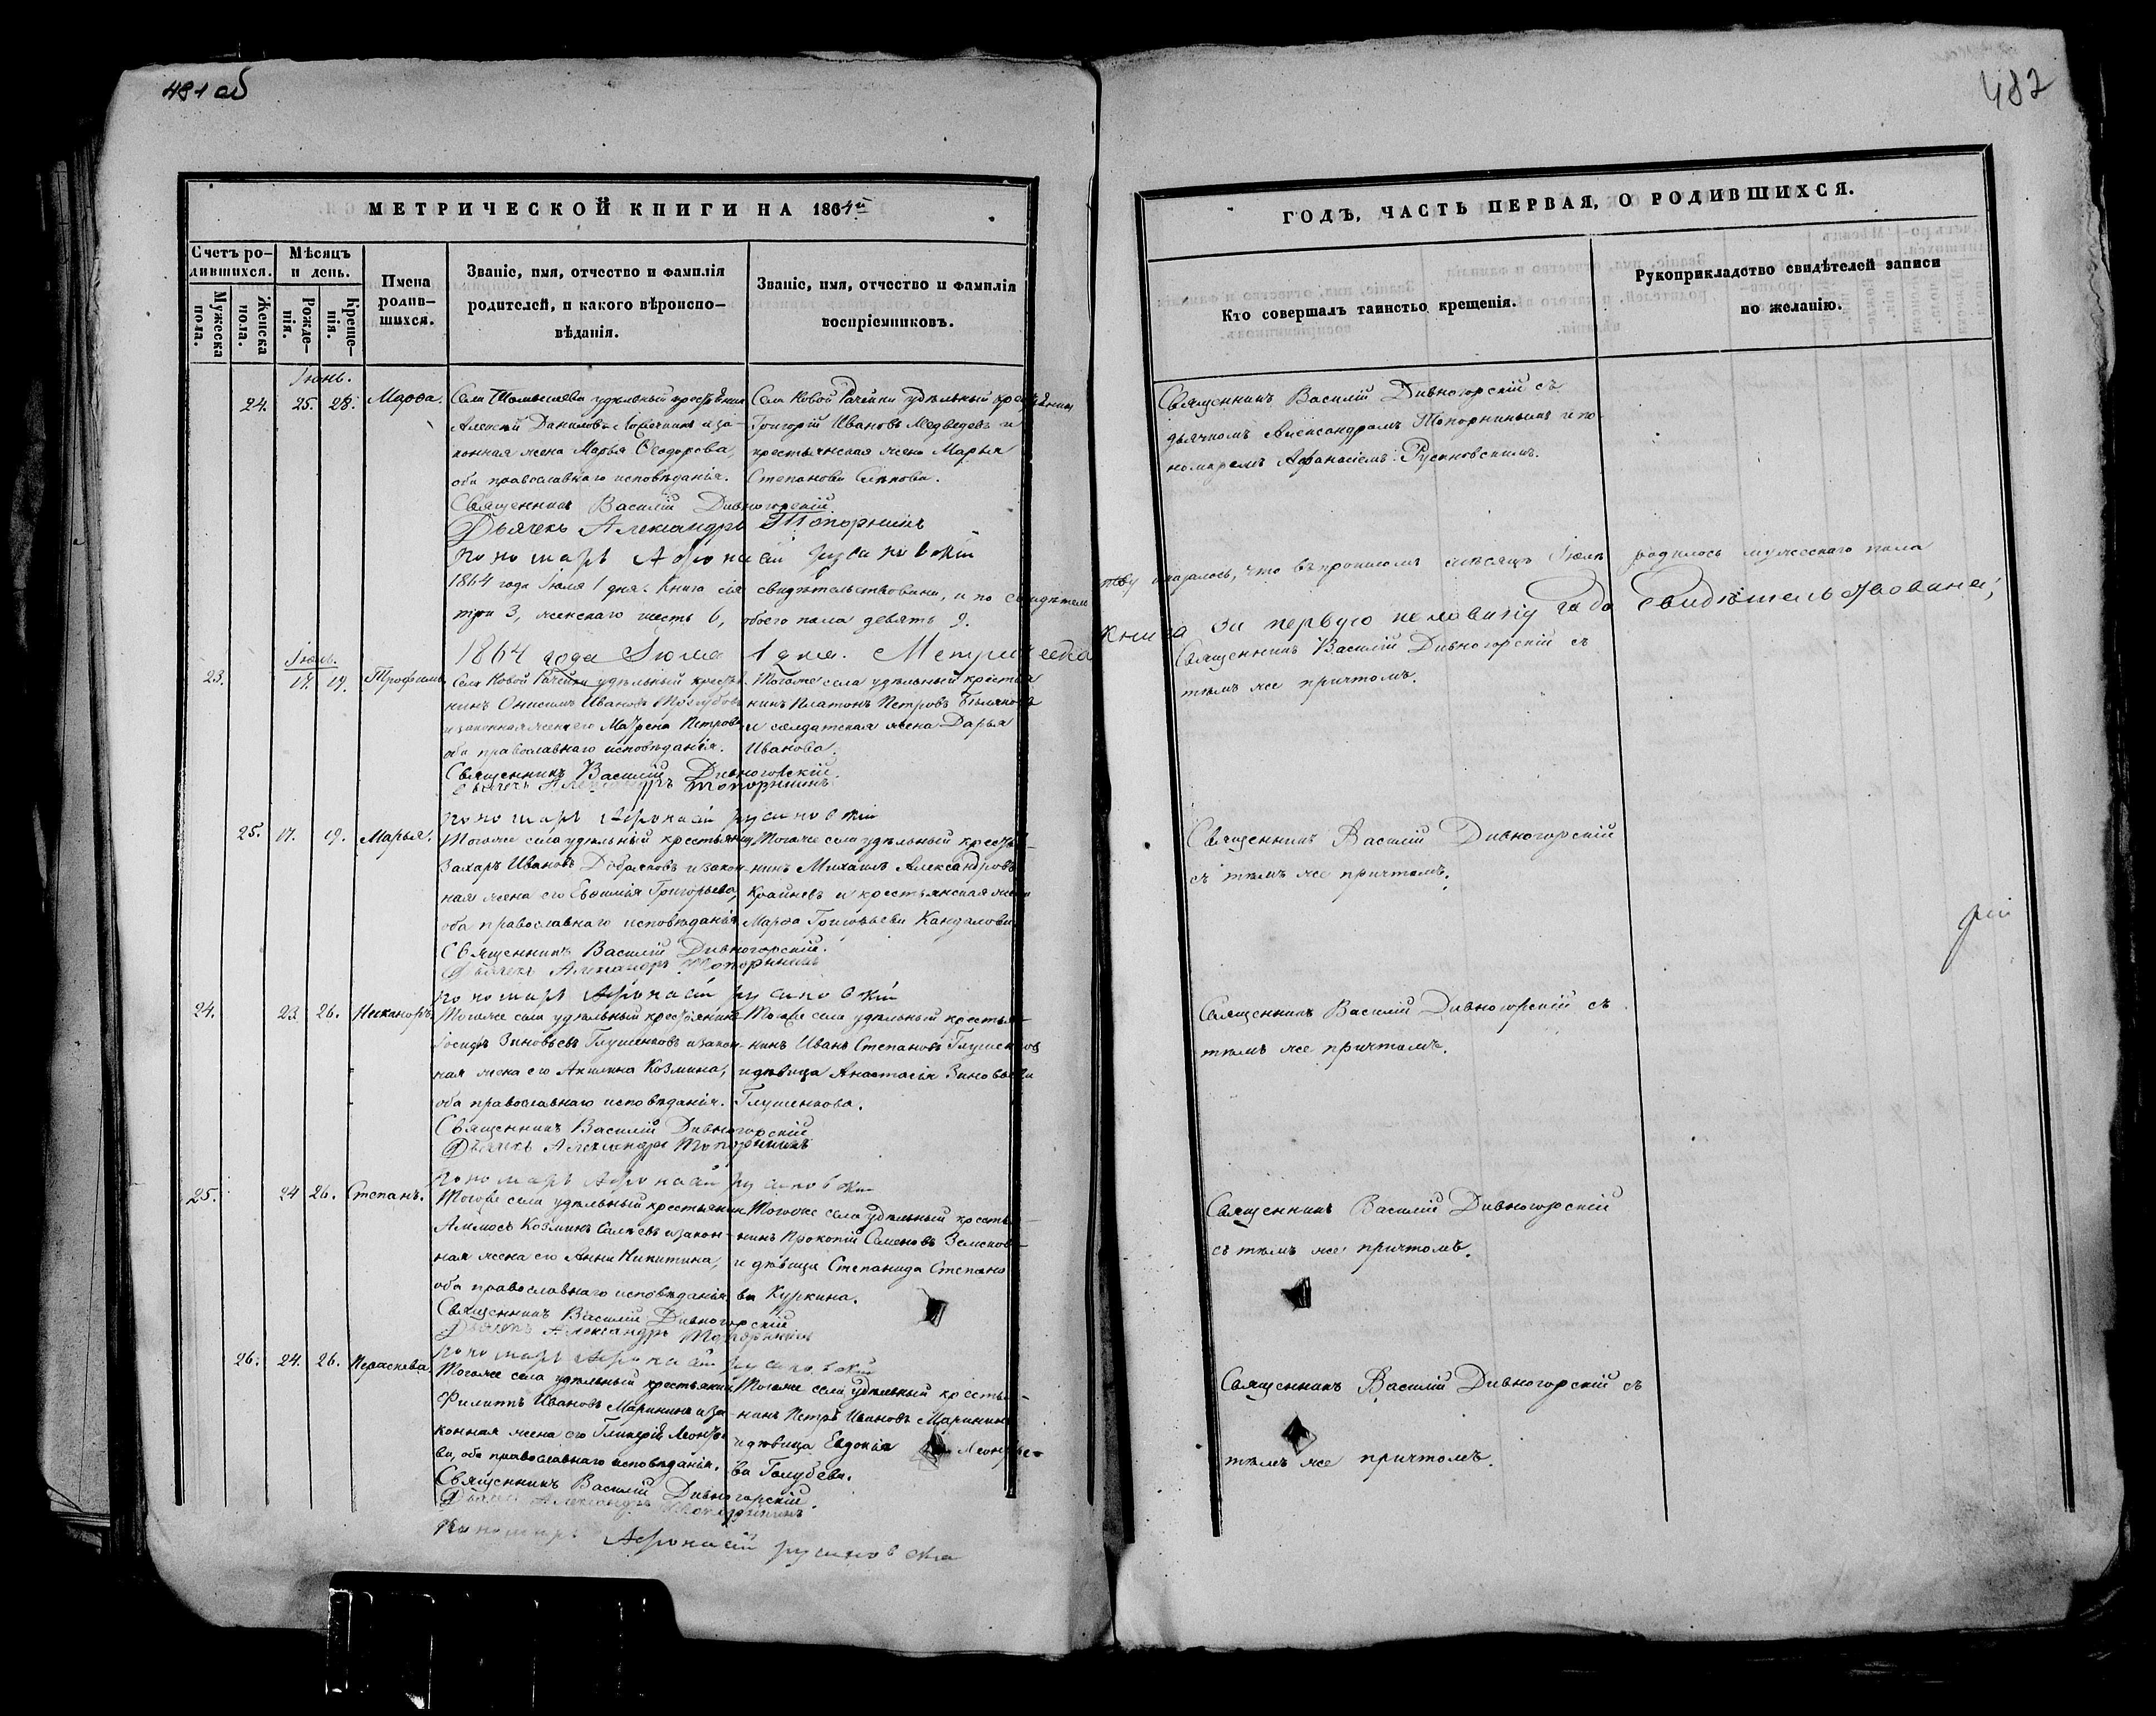 481 об
МЕТРИЧЕСКОЙ КНИГИ НА 1864й
Счетъ ро-
дившихся.
Мѣсяцъ
и день.
Имена
родив-
шихся.
Званіе, имя, отчество и фамилія
родителей, и какого вѣроиспо-
вѣданія.
Званіе, имя, отчество и фамилія
воспріемниковъ.
Мужеска
пола.
Женска
пола.
Рожде-
нія.
Креще-
нія.
Іюнь.
24. 25. 28. Марѳа.
Села Томышева удѣльный крестьянинъ
Алексѣй Даниловъ и за-
конная жена Марья Ѳеодорова,
оба православнаго исповѣданія.
Села Новой Рачейки удѣльный крестьянинъ
Григорій Ивановъ Медведевъ и
крестьянская жена Марья
Степанова
Священникъ Василій Дивногорскій.
Дьячекъ Александръ Топорнинъ
пономарь Афонасій Русановскій
1864 года Іюля 1 дня. Книга сія свидѣтельствована, и по свидѣтель
три 3, женскаго шесть 6, обоего пола девять 9.
1864 года Іюля 1 дня. Метрическая
Іюль.
23. 17. 19. Трофимъ.
Села Новой Рачейки удѣльный крестья-
нинъ Онисимъ Ивановъ
и законная жена его Матрена Петрова
оба православнаго исповѣданія.
Тогоже села удѣльный крестья
нинъ Платонъ Петровъ
и солдатская жена Дарья
Иванова.
Священникъ Василій Дивногорскій.
Дьячекъ Александръ Топорнинъ
пономарь Афонасій Русановскій
25. 17. 19. Марья.
Тогоже села удѣльный крестьянинъ
Захаръ Ивановъ и закон-
ная жена его Евѳимія Григорьева,
оба православнаго исповѣданія
Тогоже села удѣльный крестья-
нинъ Михаилъ Александровъ
Крайневъ и крестьянская жена
Марѳа Григорьева Кандалова
Священникъ Василій Дивногорскій.
Дьячекъ Александръ Топорнинъ
пономарь Афонасій Русановскій
24. 23. 26. Никаноръ.
Тогоже села удѣльный крестьянинъ
Іосифъ Зиновьевъ Глушенковъ и закон-
ная жена его Акилина Козмина,
оба православнаго исповѣданія.
Тогоже села удѣльный крестья-
нинъ Иванъ Степановъ Глушенковъ
и дѣвица Анастасія Зиновьева
Глушенкова.
Священникъ Василій Дивногорскій
Дьячекъ Александръ Топорнинъ
пономарь Афонасій Русановскій
25. 24 26. Степанъ.
Тогоже села удѣльный крестьянинъ
Аммосъ Козминъ и закон-
ная жена его Анна Никитина,
оба православнаго исповѣданія
Тогоже села удѣльный крестья-
нинъ Прокопій Семеновъ Земсковъ
и дѣвица Степанида Степано
ва Куркина.
Священникъ Василій Дивногорскій
Дьячекъ Александръ Топорнинъ
пономарь Афонасій Русановскій
26. 24. 26. Параскева.
Тогоже села удѣльный крестьянинъ
Филиппъ Ивановъ Марининъ и за-
конная жена его Гликерія Леонтье
ва, оба православнаго исповѣданія.
Тогоже села удѣльный крестья-
нинъ Петръ Ивановъ Марининъ
и дѣвица Евдокія Леонтье-
ва Голубева.
Священникъ Василій Дивногорскій.
Дьячекъ Александръ Топорнинъ
пономарь Афонасій Русановскій
482
ГОДЪ, ЧАСТЬ ПЕРВАЯ, О РОДИВШИХСЯ.
Кто совершалъ таинстьо крещенія.
Рукоприкладство свидѣтелей записи
по желанію.
Священникъ Василій Дивногорскій съ
дьячкомъ Александромъ Топорнинымъ и по
номаремъ Афанасіемъ Русановскимъ.
ству оказалось, что въ прошломъ мѣсяцѣ Іюнѣ родилось мужескаго пола
книга за первую половину года свидѣтельствована;
Священникъ Василій Дивногорскій съ
тѣмъ же причтомъ.
Священникъ Василій Дивногорскій
съ тѣмъ же причтомъ.
Священникъ Василій Дивногорскій съ
тѣмъ же причтомъ.
Священникъ Василій Дивногорскій
съ тѣмъ же причтомъ.
Священникъ Василій Дивногорскій съ
тѣмъ же причтомъ.